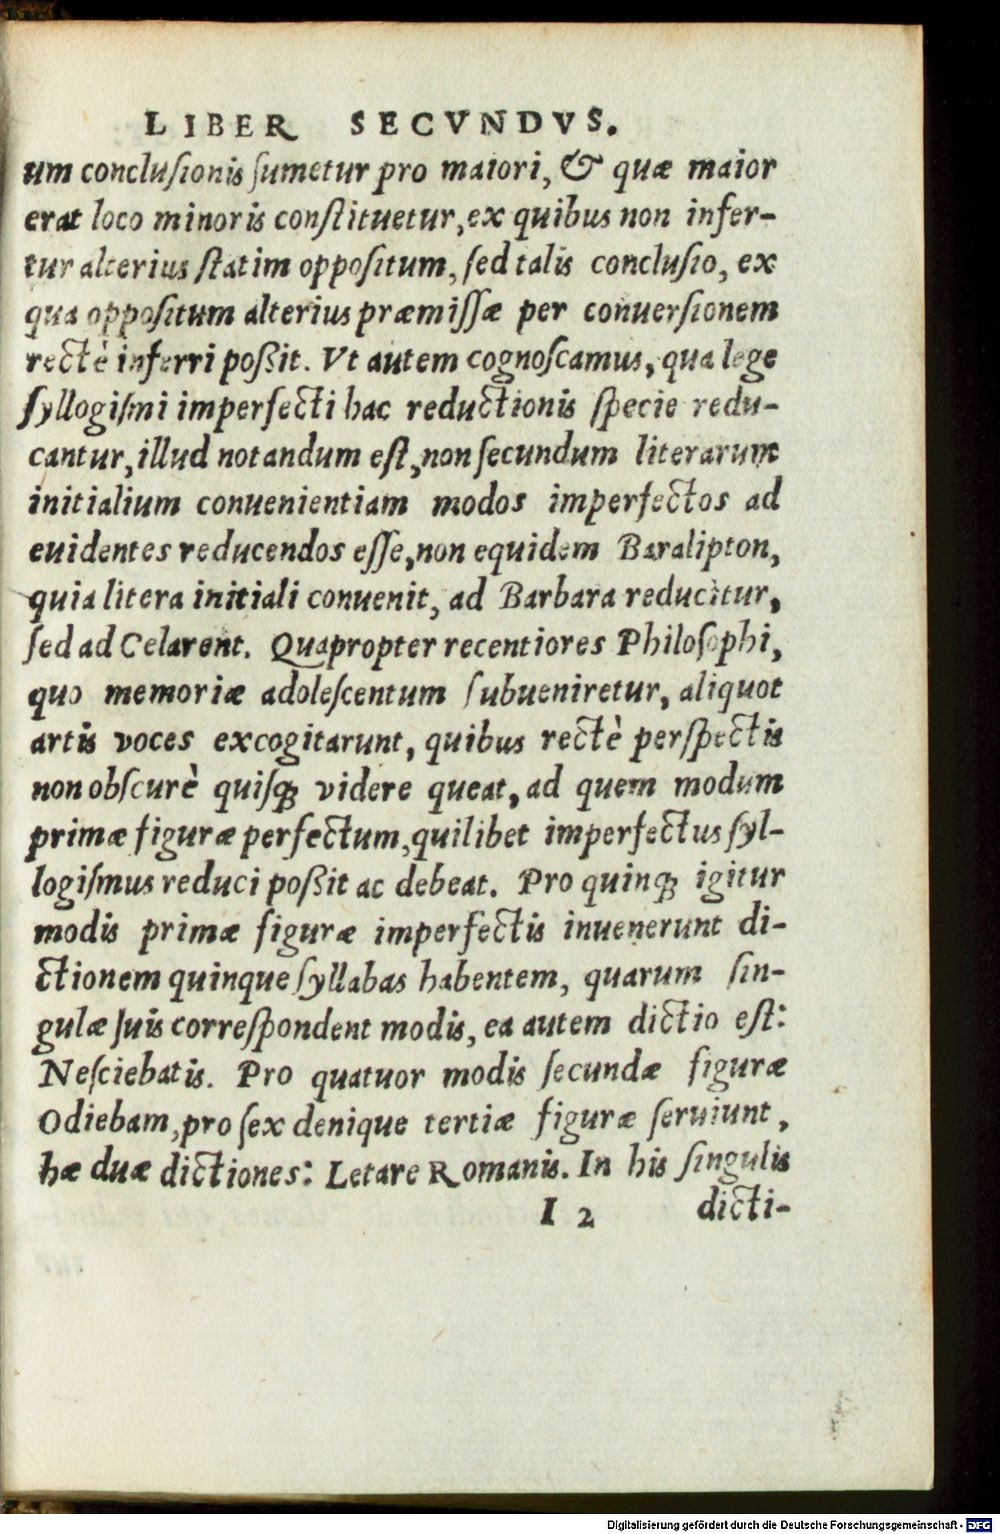 LIBER SECVNDVS.
um concluſionis ſumetur pro maiori, & quæ maior
erat loco minoris conſtituetur, ex quibus non infer-
tur alterius ſtatim oppoſitum, ſed talis concluſio, ex
qua oppoſitum alterius præmiſſæ per conuerſionem
rectè inferri poßit. Vt autem cognoſcamus, qua lege
ſyllogiſmi imperfecti hac reductionis ſpecie redu-
cantur, illud notandum eſt, non ſecundum literarum
initialium conuenientiam modos imperfectos ad
euidentes reducendos eſſe, non equidem Baralipton,
quia litera initiali conuenit, ad Barbara reducitur,
ſed ad Celarent. Quapropter recentiores Philoſophi,
quo memoriæ adoleſcentum ſubueniretur, aliquot
artis voces excogitarunt, quibus rectè perſpectis
non obſcurè quiſq; videre queat, ad quem modum
primæ figuræ perfectum, quilibet imperfectus ſyl-
logiſmus reduci poßit ac debeat. Pro quinq; igitur
modis primæ figuræ imperfectis inuenerunt di-
ctionem quinque ſyllabas habentem, quarum ſin-
gulæ ſuis correſpondent modis, ea autem dictio eſt:
Neſciebatis. Pro quatuor modis ſecundæ figuræ
Odiebam, pro ſex denique tertiæ figuræ ſeruiunt,
hæ duæ dictiones: Letare Romanis. In his ſingulis
I 2 dicti-
Digitalisierung gefördert durch die Deutsche Forschungsgemeinschaft - DFG